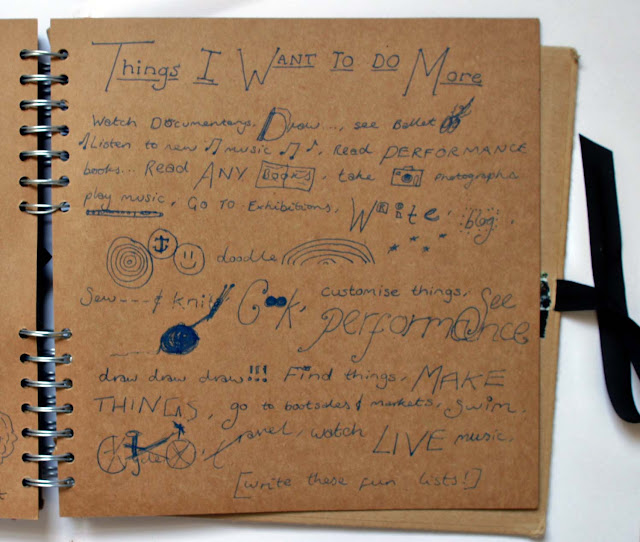 Things I Want To Do More
Watch Documentarys. Draw..., see Ballet
Listen to new music, Read PERFORMANCE
books... Read ANY Books, take photographs
play music, Go to Exhibitions, Write, blog,
doodle
Sew---& knit, Cook, customise things, See
performance
draw draw draw!!! Find things, MAKE
THINGS, go to bootsales & markets, swim,
travel, watch LIVE music,
[write these fun lists!]